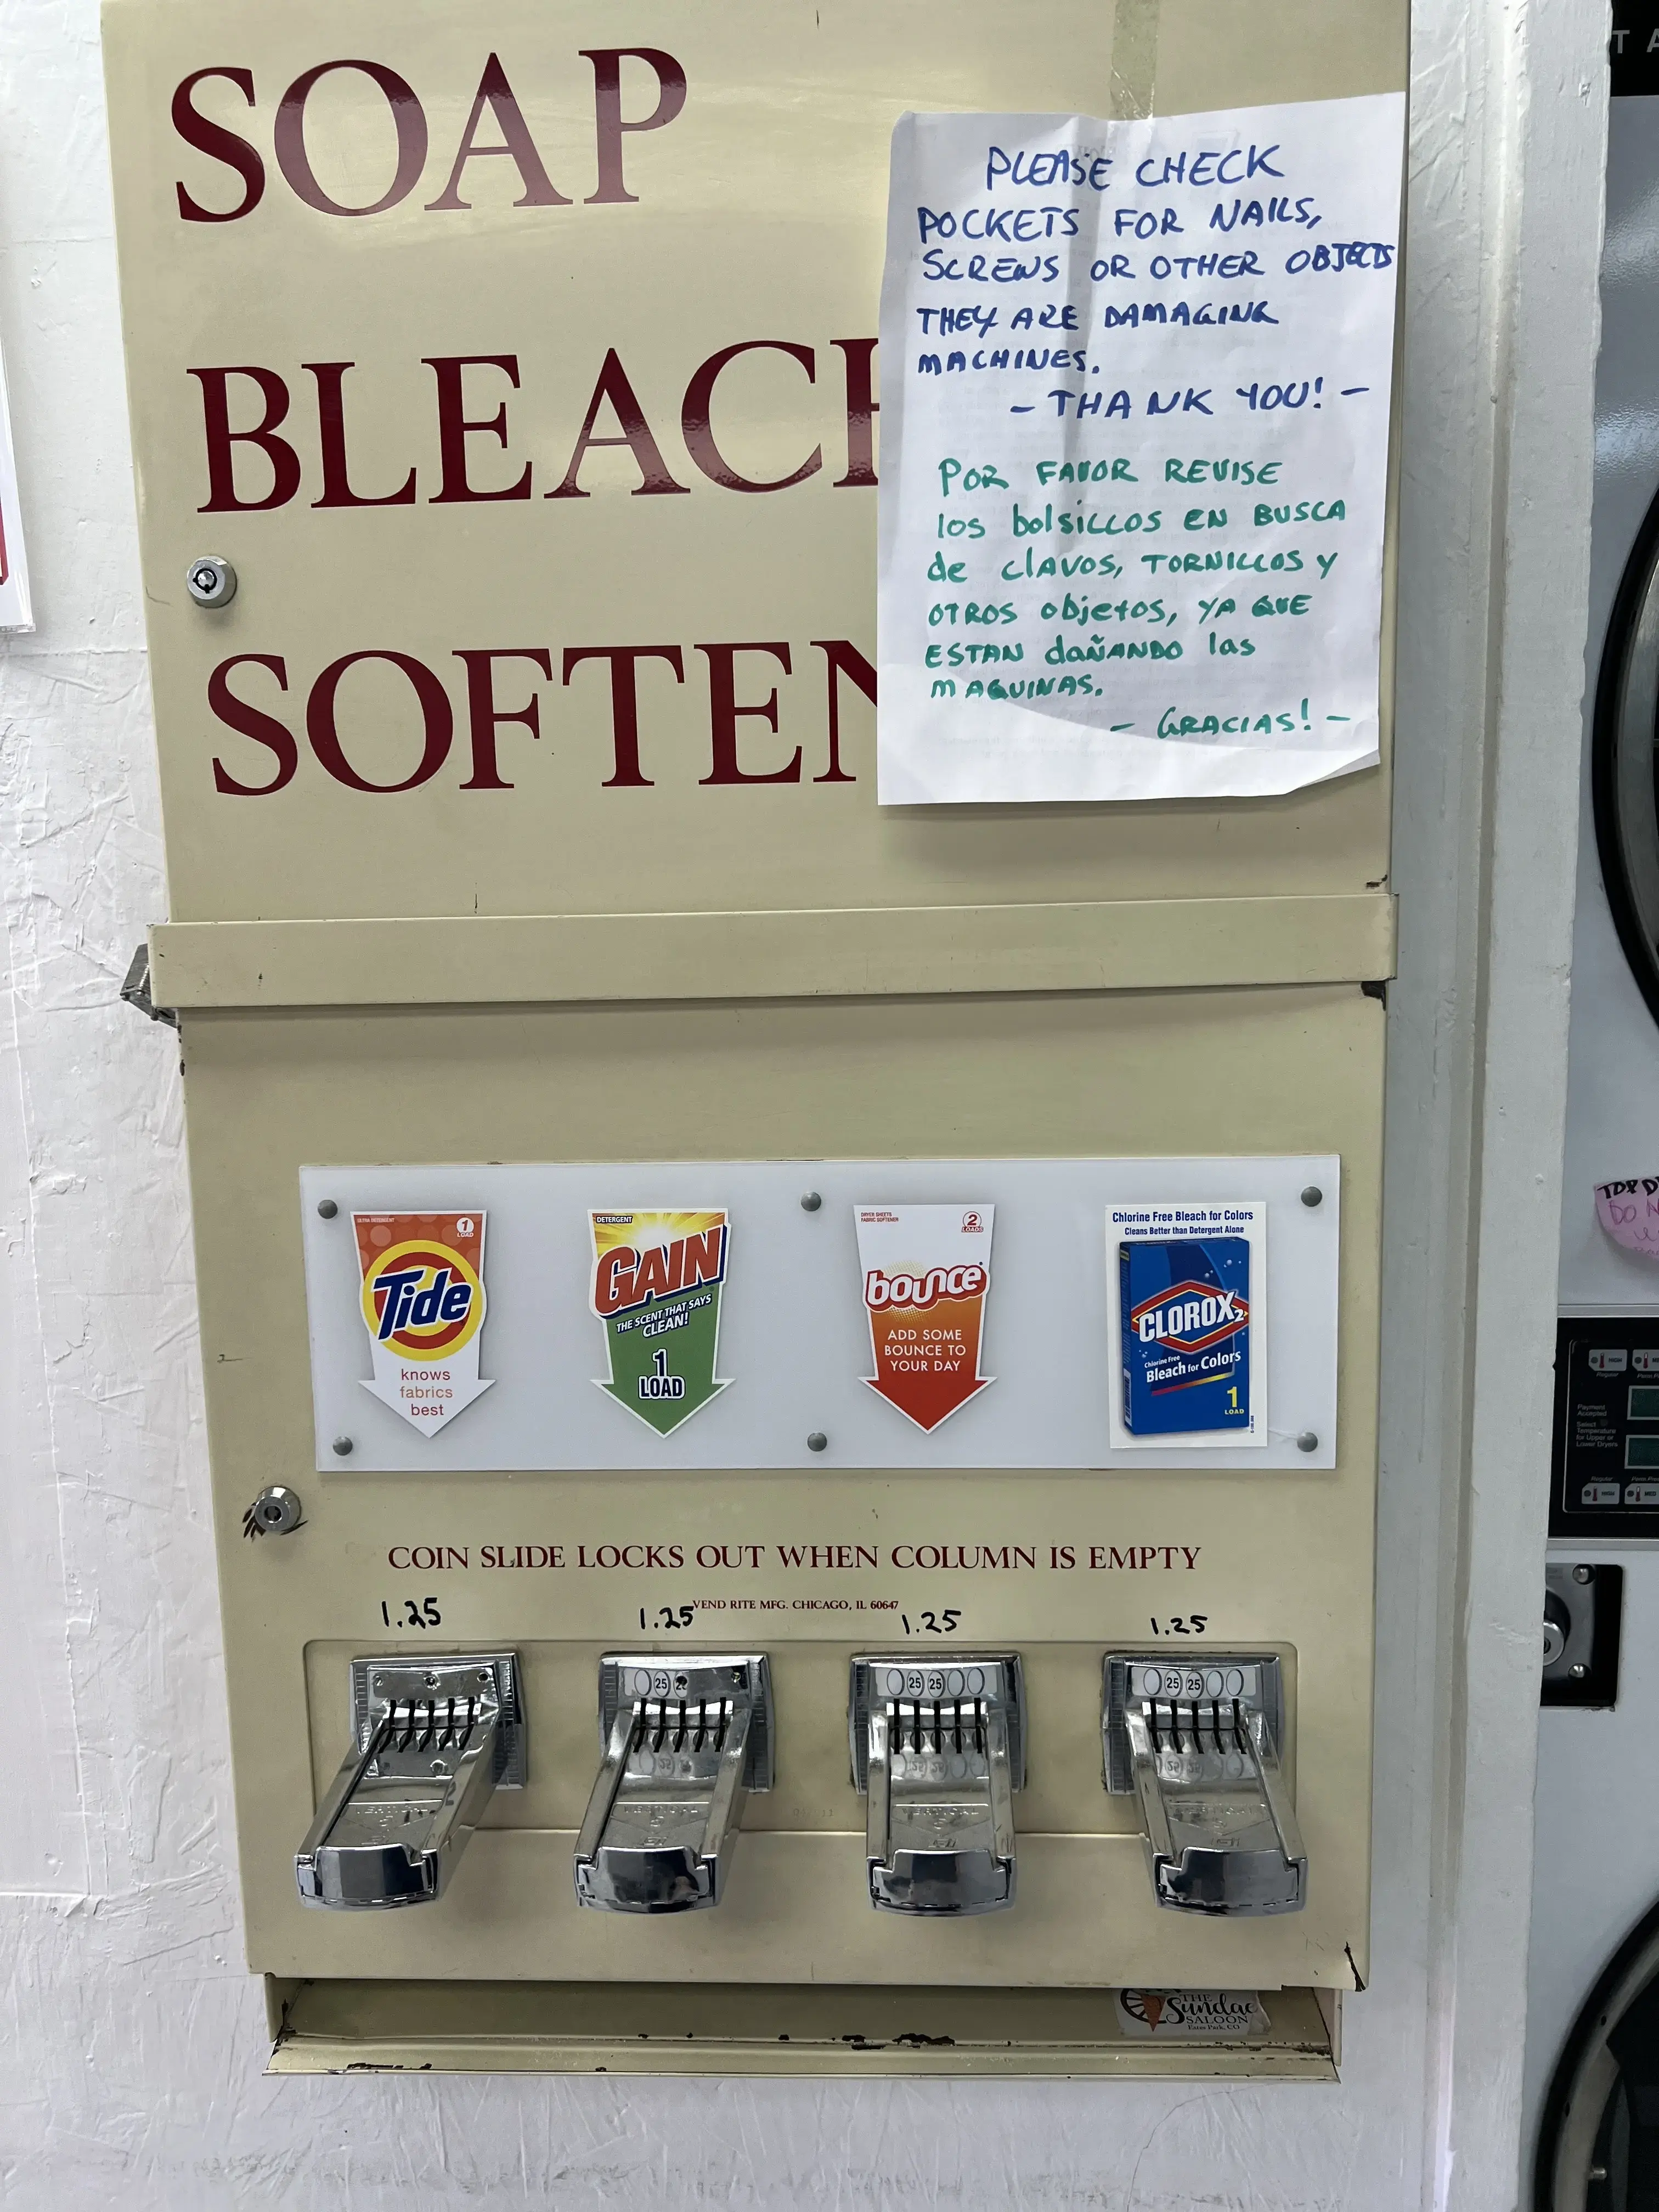 SOAP
BLEACH
SOFTEN
PLEASE CHECK
POCKETS FOR NAILS,
SCREWS OR OTHER OBJECTS
THEY ARE DAMAGING
MACHINES.
- THANK YOU! -
POR FAVOR REVISE
los bolsillos EN BUSCA
de clAVOS, TORNILLOS y
OTROS objetos, YA QUE
ESTAN dañANDO las
MAQUINAS.
- GRACIAS! -
ULTRA DETERGENT
1
LOAD
Tide
knows
fabrics
best
DETERGENT
GAIN
THE SCENT THAT SAYS
CLEAN!
1
LOAD
DRYER SHEETS
FABRIC SOFTENER
2
LOADS
bounce
ADD SOME
BOUNCE TO
YOUR DAY
Chlorine Free Bleach for Colors
Cleans Better than Detergent Alone
CLOROX2
Chlorine Free
Bleach for Colors
1
LOAD
COIN SLIDE LOCKS OUT WHEN COLUMN IS EMPTY
VEND RITE MFG. CHICAGO, IL 60647
1.25
1.25
1.25
1.25
25
25 25
25 25
THE
Sundae
SALOON
Estes Park, CO
TOP
DO
Payment
Accepted
Select
Temperature
for Upper or
Lower Dryers
Regular